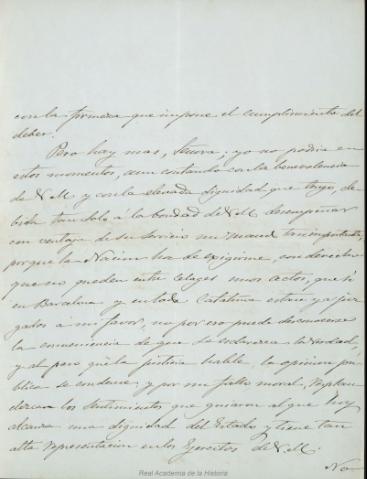 con la firmeza que impone el cumplimiento del
deber.
Pero hay mas, Señora, yo no podria en
estos momentos, aun contando con la benevolencia
de V.M. y con la elevada dignidad que tengo, de-
bida tan solo a la bondad de V.M. desempeñar
con ventaja de su servicio un mando tan importante,
porque la Nacion ha de exigirme, con derecho
que no queden entre celages unos actos, que si
en Barcelona y en toda Cataluña estan ya juz-
gados á mi favor, no por eso puede desconocerse
la conveniencia de que se esclarezca la verdad,
y al paso que la justicia hable, la opinion pu-
blica se condense y por un fallo moral, resplan-
dezcan los sentimientos que guiaron al que hoy
alcanza una dignidad del Estado y tiene tan
alta representacion en los Ejercitos de V.M.
No
Real Academia de la Historia